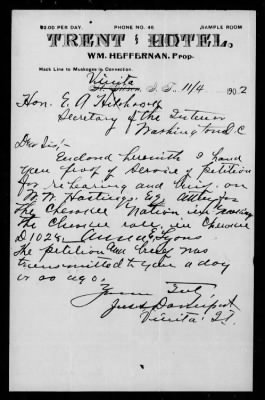 $2.00 PER DAY. PHONE NO. 46 SAMPLE ROOM
TRENT HOTEL,
WM. HEFFERNAN, Prop.
Hack Line to Muskogee in Connection.
Vinita I. T. 11/4 1902
Hon. E. A. Hitchcock
Secretary of the Interior
Washington D.C
Dear Sir;-
Enclosed herewith I hand
you proof of service of petition
for rehearing and brief on
W. W. Hastings Esq Atty for
the Cherokee Nation in
the Cherokee case in Cherokee
D1028, Anna Lyons
The petition and brief was
transmitted to you a day
or so ago.
Yours Truly
Jess Davenport
Vinita I.T.